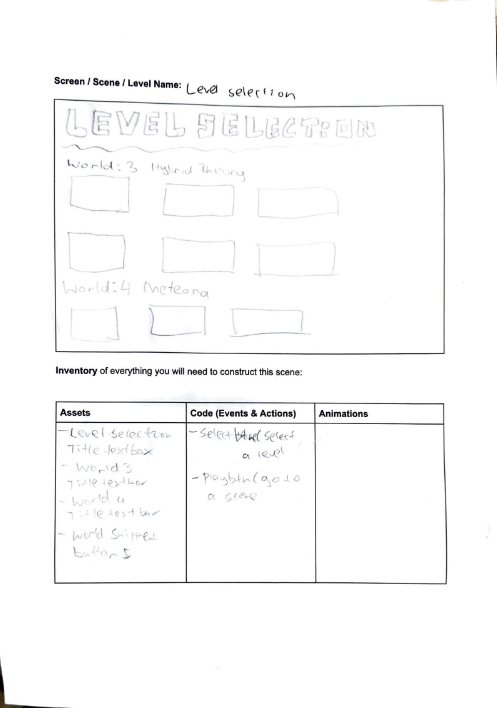 Screen / Scene / Level Name: Level selection
LEVEL SELECTION
World: 3 Hybrid Theory
World: 4 Meteora
Inventory of everything you will need to construct this scene:
Assets
Code (Events & Actions)
Animations
- Level selection
Title textbox
- World 3
Title textbox
- World 4
Title textbox
- World Snippet
buttons
- Select select
a level
- Playbtn (go to
a scene